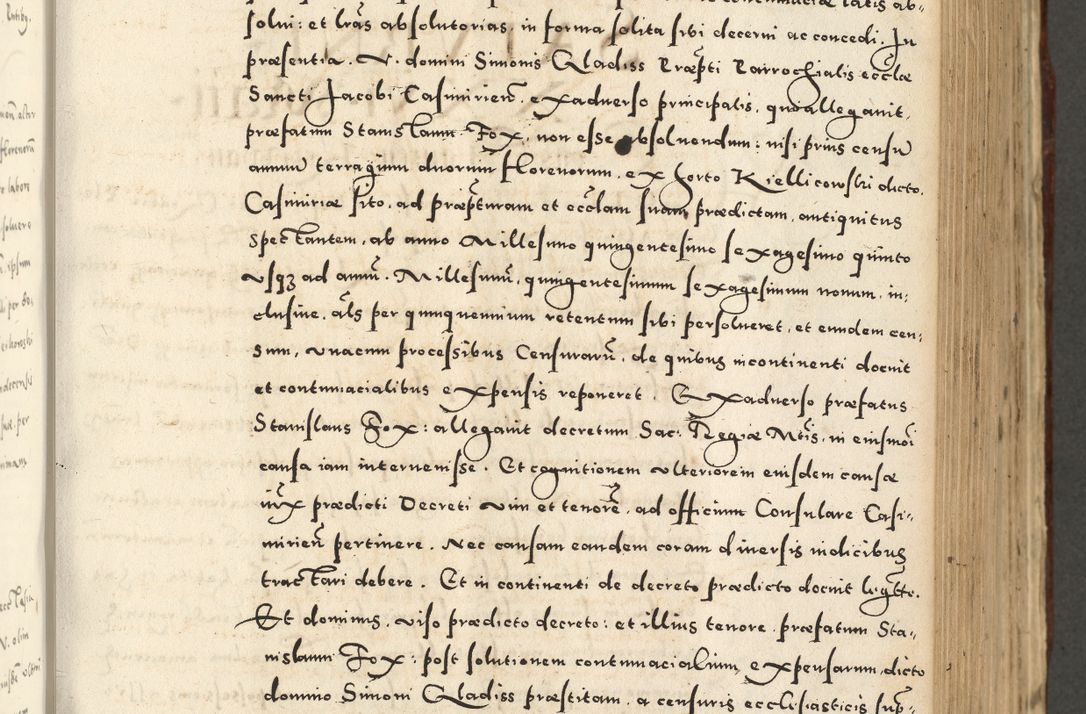 solui: et lras absolutorias, in forma solita sibi decerni ac concedi. In
præsentia. N. domini Simonis Gladiss Præpti Parrochialis ecclæ
Sancti Jacobi Casimirien. exaduerso principalis, quo allegauit,
præfatum Stanislaum Fox, non esse absoluendum: nisi prius censu
annuu terragium duorum florenorum, ex horto Kiellicowski dicto,
Casimiriæ sito, ad præpturam et ecclam suam prædictam, antiquitus
spectantem, ab anno Millesimo quingentesimo sexagesimo quinto
usqz ad annu. Millesimu, quingentesimum sexagesimum nonum, in=
clusiue, als per quinquennium retentum sibi persolueret, et eundem cen=
sum, unacum processibus Censuraru, de quibus incontinenti docuit
et contumacialibus expensis reponeret. Exaduerso præfatus
Stanislaus Fox: allegauit decretum Sac: Regiæ Mtis, in eiusmoi
causa iam interuenisse. Et cognitionem ulteriorem eiusdem causæ
iux prædicti Decreti vim et tenore, ad officium Consulare Casi=
mirien pertinere. Nec causam eandem coram diuersis iudicibus
tractari debere. Et in continenti de decreto prædicto docuit
Et dominus, viso prædicto decreto: et illius tenore præfatum Sta=
nislaum Fox: post solutionem contumacialium expensarum, dicto
domino Simoni Gladiss præstitam, a censuris ecclesiasticis sup=